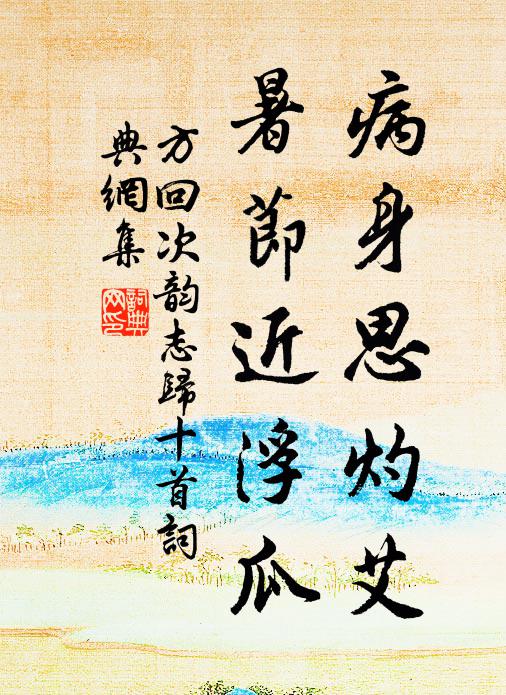 病身思灼艾
暑節近浮瓜
方回次韵志歸十首詞
典網集
詞典
网印